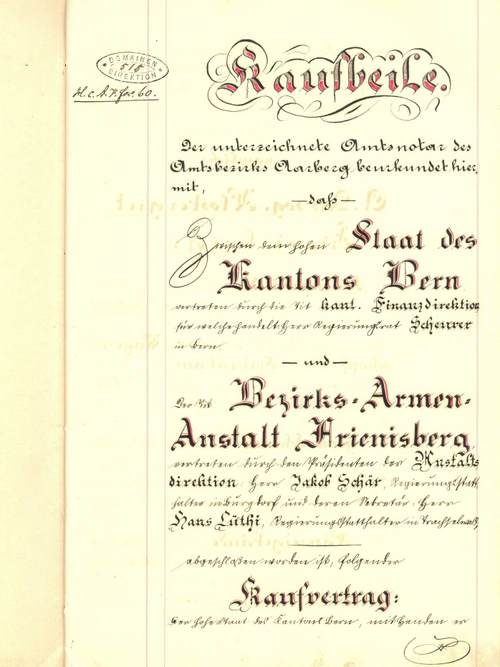 DOMAINEN
518
DIREKTION
H. c. A. V. for. 60.
Kaufbeile.
Der unterzeichnete Amtsnotar des
Amtsbezirks Aarberg beurkundet hier,
mit,
— daß —
Zwischen dem hohen Staat des
Kantons Bern
vertreten durch die Tit kant. Finanzdirektion
für welche handelt: Herr Regierungsrat Scheurer
in Bern.
— und —
Der Tit Bezirks-Armen-
Anstalt Frienisberg,
vertreten durch den Präsidenten der Anstalts
direktion: Herr Jakob Schär, Regierungsstatt
halter in Burgdorf und deren Sekretär: Herr
Hans Lüthi, Regierungsstatthalter in Trachselwald,
abgeschloßen worden ist, folgender
Kaufvertrag:
Der hohe Staat des Kantons Bern, mit Handen er